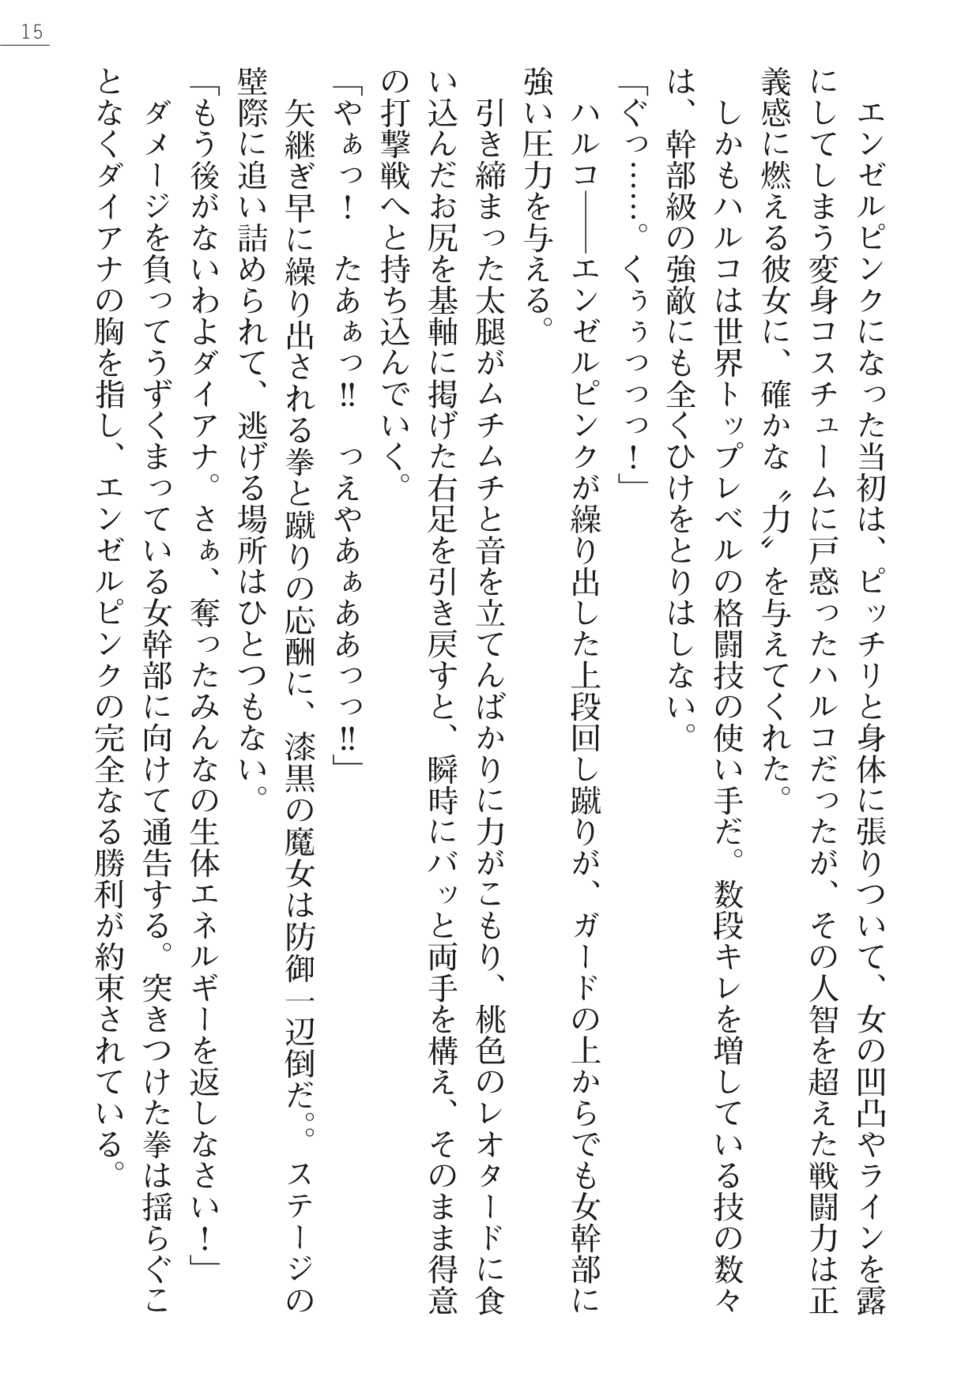 15
　エンゼルピンクになった当初は、ピッチリと身体に張りついて、女の凹凸やラインを露
にしてしまう変身コスチュームに戸惑ったハルコだったが、その人智を超えた戦闘力は正
義感に燃える彼女に、確かな〝力〟を与えてくれた。
　しかもハルコは世界トップレベルの格闘技の使い手だ。数段キレを増している技の数々
は、幹部級の強敵にも全くひけをとりはしない。
「ぐっ……。くぅぅっっっ！」
　ハルコ――エンゼルピンクが繰り出した上段回し蹴りが、ガードの上からでも女幹部に
強い圧力を与える。
　引き締まった太腿がムチムチと音を立てんばかりに力がこもり、桃色のレオタードに食
い込んだお尻を基軸に掲げた右足を引き戻すと、瞬時にバッと両手を構え、そのまま得意
の打撃戦へと持ち込んでいく。
「やぁっ！　たあぁっ‼　っえやあぁああっっ‼」
　矢継ぎ早に繰り出される拳と蹴りの応酬に、漆黒の魔女は防御一辺倒だ。。ステージの
壁際に追い詰められて、逃げる場所はひとつもない。
「もう後がないわよダイアナ。さぁ、奪ったみんなの生体エネルギーを返しなさい！」
　ダメージを負ってうずくまっている女幹部に向けて通告する。突きつけた拳は揺らぐこ
となくダイアナの胸を指し、エンゼルピンクの完全なる勝利が約束されている。